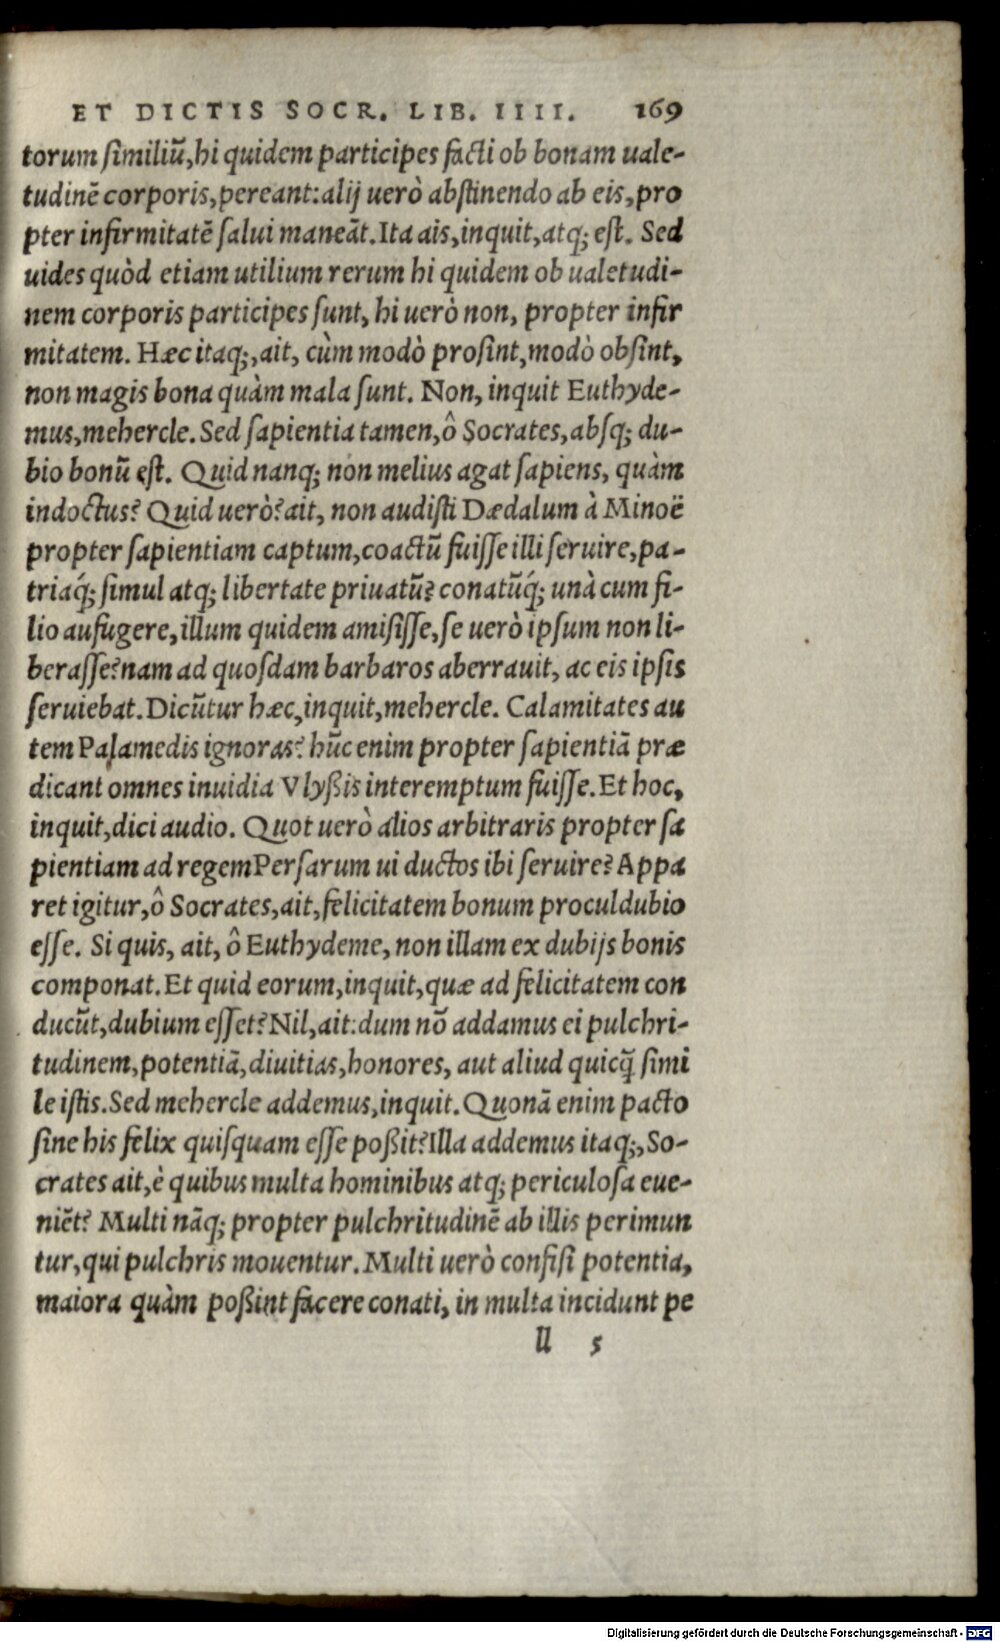 ET DICTIS SOCR. LIB. IIII. 169
torum ſimiliũ, hi quidem participes facti ob bonam uale-
tudinẽ corporis, pereant: alij uerò abſtinendo ab eis, pro
pter infirmitatẽ ſalui maneãt. Ita ais, inquit, atq; eſt. Sed
uides quòd etiam utilium rerum hi quidem ob ualetudi-
nem corporis participes ſunt, hi uerò non, propter infir
mitatem. Hæc itaq;, ait, cùm modò proſint, modò obſint,
non magis bona quàm mala ſunt. Non, inquit Euthyde-
mus, mehercle. Sed ſapientia tamen, ô Socrates, abſq; du-
bio bonũ eſt. Quid nanq; non melius agat ſapiens, quàm
indoctus? Quid uerò? ait, non audiſti Dædalum à Minoë
propter ſapientiam captum, coactũ fuiſſe illi ſeruire, pa-
triaq́; ſimul atq; libertate priuatũ? conatũq́; unà cum fi-
lio aufugere, illum quidem amiſiſſe, ſe uerò ipſum non li-
beraſſe? nam ad quoſdam barbaros aberrauit, ac eis ipſis
ſeruiebat. Dicũtur hæc, inquit, mehercle. Calamitates au
tem Palamedis ignoras? hũc enim propter ſapientiã præ
dicant omnes inuidia Vlyßis interemptum fuiſſe. Et hoc,
inquit, dici audio. Quot uerò alios arbitraris propter ſa
pientiam ad regem Perſarum ui ductos ibi ſeruire? Appa
ret igitur, ô Socrates, ait, felicitatem bonum proculdubio
eſſe. Si quis, ait, ô Euthydeme, non illam ex dubijs bonis
componat. Et quid eorum, inquit, quæ ad felicitatem con
ducũt, dubium eſſet? Nil, ait: dum nõ addamus ei pulchri-
tudinem, potentiã, diuitias, honores, aut aliud quicq̃ ſimi
le iſtis. Sed mehercle addemus, inquit. Quonã enim pacto
ſine his felix quiſquam eſſe poßit? Illa addemus itaq;, So-
crates ait, è quibus multa hominibus atq; periculoſa eue-
niẽt? Multi nãq; propter pulchritudinẽ ab illis perimun
tur, qui pulchris mouentur. Multi uerò confiſi potentia,
maiora quàm poßint facere conati, in multa incidunt pe
ll 5
Digitalisierung gefördert durch die Deutsche Forschungsgemeinschaft - DFG